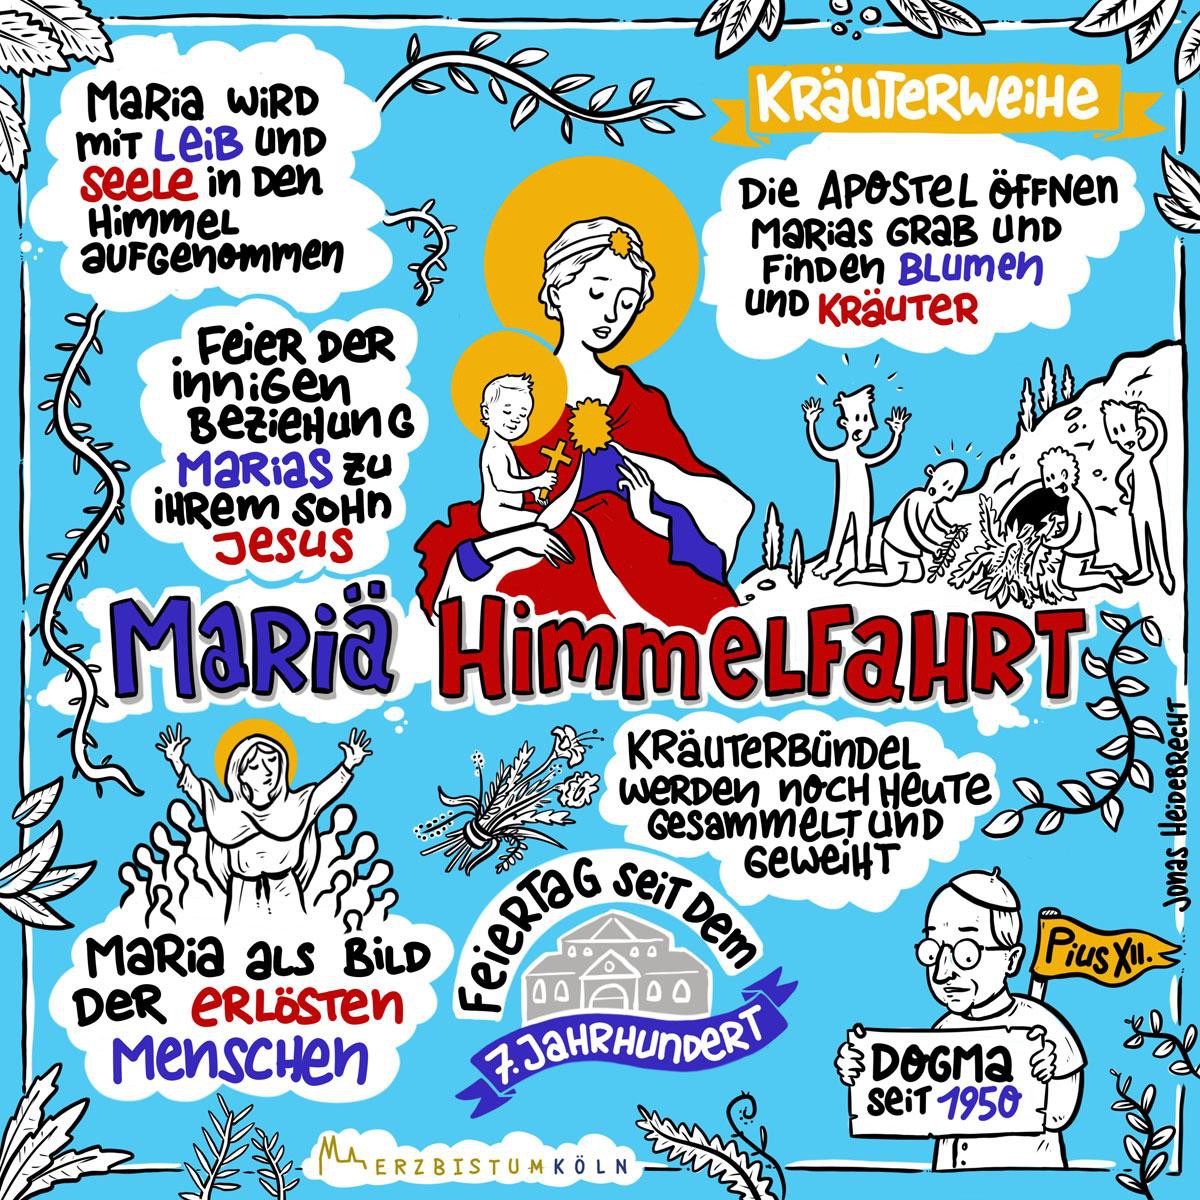 Maria wird
mit Leib und
Seele in den
Himmel
aufgenommen
Kräuterweihe
Die Apostel öffnen
Marias Grab und
finden Blumen
und Kräuter
Feier der
innigen
Beziehung
Marias zu
ihrem Sohn
Jesus
Mariä Himmelfahrt
Kräuterbündel
werden noch heute
gesammelt und
geweiht
Maria als Bild
der erlösten
Menschen
Feiertag seit dem
7. Jahrhundert
Pius XII.
Dogma
seit 1950
Jonas Heidebrecht
ERZBISTUMKÖLN